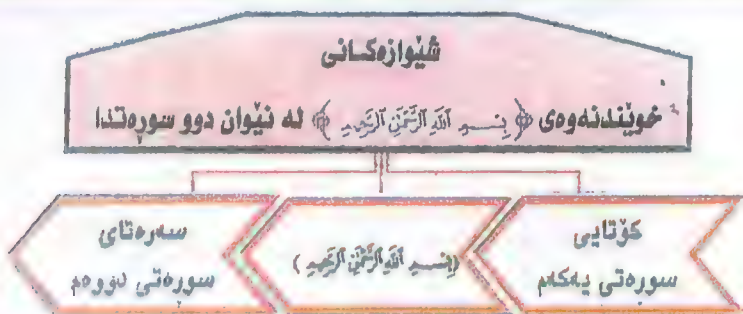 شێوازەکانی
خوێندنەوەی ﴿ بِسْمِ اللَّهِ الرَّحْمَٰنِ الرَّحِيمِ ﴾ لە نێوان دوو سورەتدا
کۆتایی
سورەتی یەکەم
﴿بِسْمِ اللَّهِ الرَّحْمَٰنِ الرَّحِيمِ ﴾
سەرەتای
سورەتی دووەم